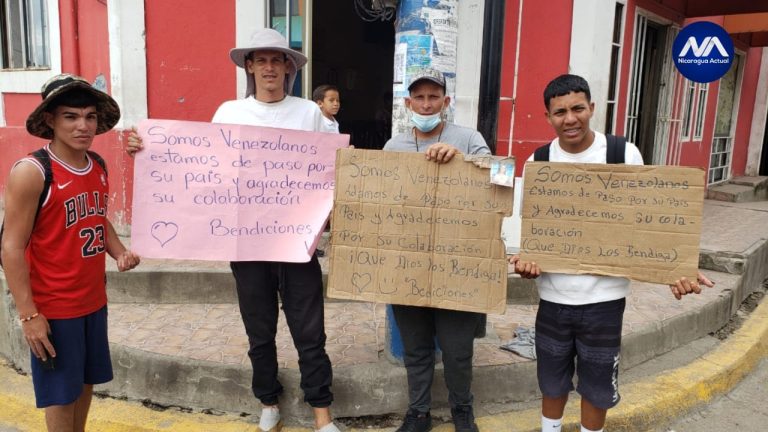 Somos Venezolanos
estamos de paso por
su país y agradecemos
su colaboración
Bendiciones
Somos Venezolanos
Estamos de Paso por su
País y Agradecemos
Por Su Colaboración
¡Que Dios Los Bendiga!
"Bediciones"
Somos Venezolanos
Estamos de Paso por su País
y Agradecemos Su cola-
boración
(Que Dios los Bendiga)
BULLS
23
NA
Nicaragua Actual